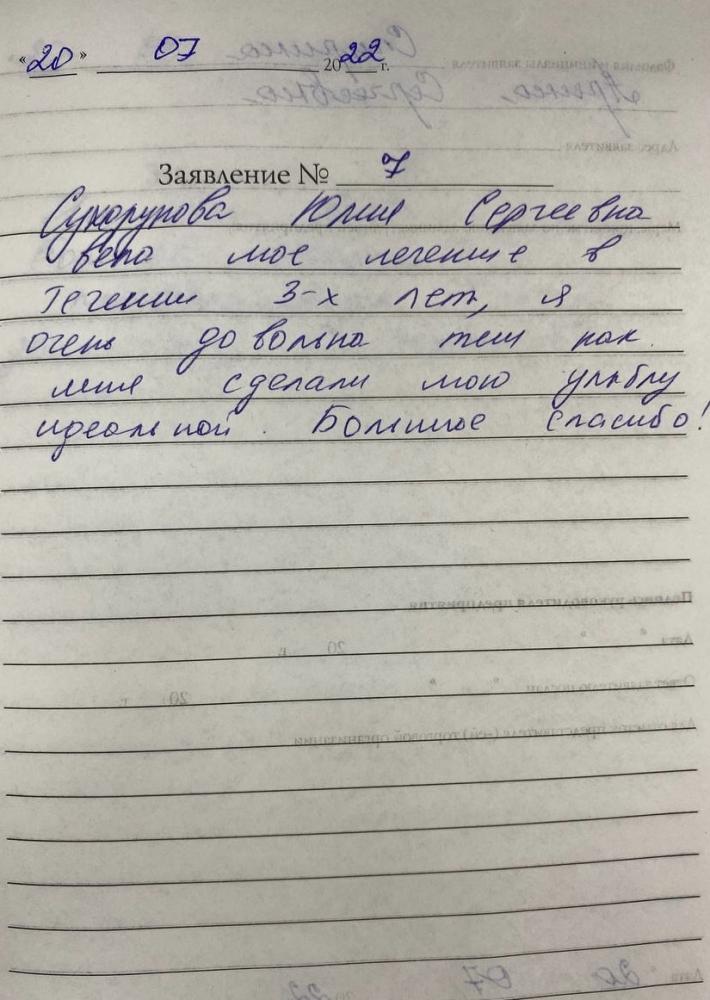 «20» 07 2022 г.
Заявление № 7
Сухорукова Юлия Сергеевна
вела мое лечение в
течении 3-х лет, я
очень довольна тем как
мне сделали мою улыбку
идеальной. Большое спасибо!